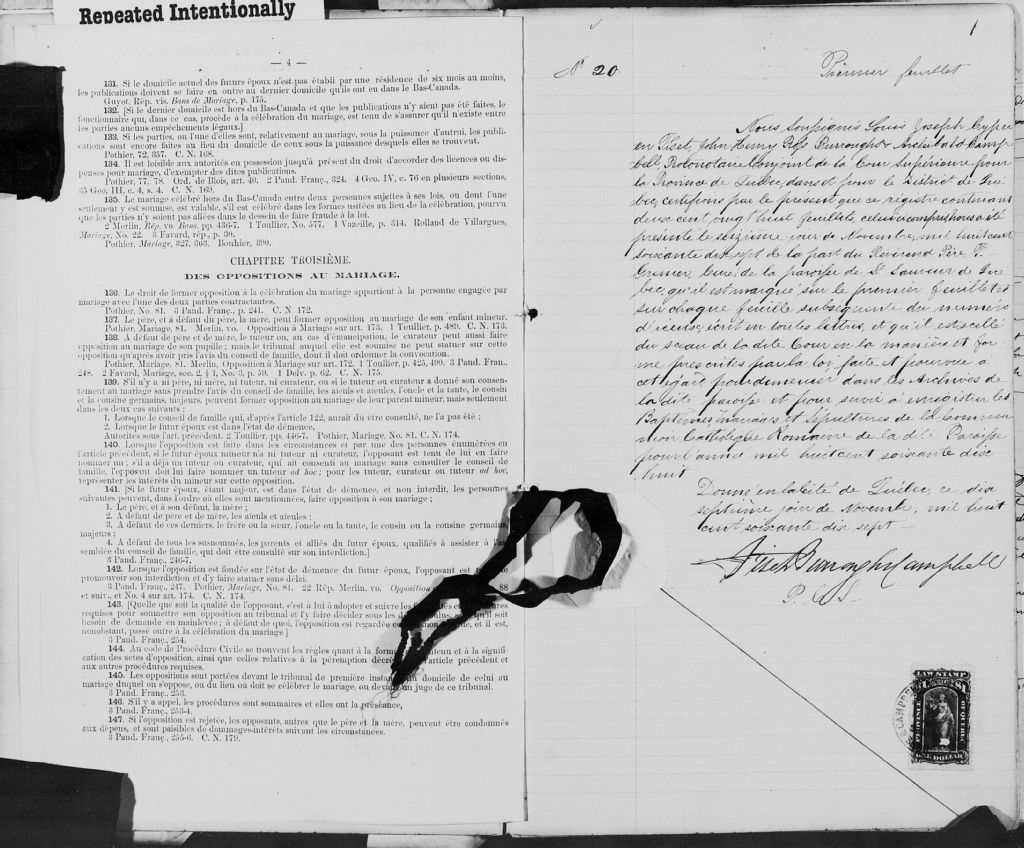 Repeated Intentionally
— 4 —
131. Si le domicile actuel des futurs époux n'est pas établi par une résidence de six mois au moins,
les publications doivent se faire en outre au dernier domicile qu'ils ont eu dans le Bas-Canada.
Guyot, Rép. vis. Bans de Mariage, p. 175.
132. [Si le dernier domicile est hors du Bas-Canada et que les publications n'y aient pas été faites, le
fonctionnaire qui, dans ce cas, procède à la célébration du mariage, est tenu de s'assurer qu'il n'existe entre
les parties aucuns empêchements légaux.]
133. Si les parties, ou l'une d'elles sont, relativement au mariage, sous la puissance d'autrui, les publi-
cations sont encore faites au lieu du domicile de ceux sous la puissance desquels elles se trouvent.
Pothier, 72, 357. C. N. 168.
134. Il est loisible aux autorités en possession jusqu'à présent du droit d'accorder des licences ou dis-
penses pour mariage, d'exempter des dites publications.
Pothier, 77, 78. Ord. de Blois, art. 40. 2 Pand. Franç., 324. 4 Geo. IV, c. 76 en plusieurs sections,
35 Geo. III, c. 4, s. 4. C. N. 169.
135. Le mariage célébré hors du Bas-Canada entre deux personnes sujettes à ses lois, ou dont l'une
seulement y est soumise, est valable, s'il est célébré dans les formes usitées au lieu de la célébration, pourvu
que les parties n'y soient pas allées dans le dessein de faire fraude à la loi.
2 Merlin, Rép. vo. Bans, pp. 436-7. 1 Toullier, No. 577. 1 Vazeille, p. 314. Rolland de Villargues,
Mariage, No. 22. 3 Favard, rép., p. 30.
Pothier, Mariage, 327, 363. Bouhier, 390.
CHAPITRE TROISIÈME.
DES OPPOSITIONS AU MARIAGE.
136. Le droit de former opposition à la célébration du mariage appartient à la personne engagée par
mariage avec l'une des deux parties contractantes.
Pothier, No. 81. 3 Pand. Franç., p. 241. C. N. 172.
137. Le père, et à défaut du père, la mère, peut former opposition au mariage de son enfant mineur.
Pothier, Mariage, 81. Merlin, vo. Opposition à Mariage sur art. 173. 1 Toullier, p. 489. C. N. 173.
138. A défaut de père et de mère, le tuteur ou, au cas d'émancipation, le curateur peut aussi faire
opposition au mariage de son pupille; mais le tribunal auquel elle est soumise ne peut statuer sur cette
opposition qu'après avoir pris l'avis du conseil de famille, dont il doit ordonner la convocation.
Pothier, Mariage, 81. Merlin, Opposition à Mariage sur art. 172. 1 Toullier, p. 425, 490. 3 Pand. Fran.,
248. 2 Favard, Mariage, sec. 2, § 1, No. 3, p. 59. 1 Delv. p. 62. C. N. 175.
139. S'il n'y a ni père, ni mère, ni tuteur, ni curateur, ou si le tuteur ou curateur a donné son consente-
ment au mariage sans prendre l'avis du conseil de famille, les aïeuls et aïeules, l'oncle et la tante, le cousin
et la cousine germains, majeurs, peuvent former opposition au mariage de leur parent mineur, mais seulement
dans les deux cas suivants :
1. Lorsque le conseil de famille qui, d'après l'article 122, aurait dû être consulté, ne l'a pas été ;
2. Lorsque le futur époux est dans l'état de démence.
Autorités sous l'art. précédent. 2 Toullier, pp. 446-7. Pothier, Mariage, No. 81. C. N. 174.
140. Lorsque l'opposition est faite dans les circonstances et par une des personnes énumérées en
l'article précédent, si le futur époux mineur n'a ni tuteur ni curateur, l'opposant est tenu de lui en faire
nommer un ; s'il a déjà un tuteur ou curateur, qui ait consenti au mariage sans consulter le conseil de
famille, l'opposant doit lui faire nommer un tuteur ad hoc ; pour les tuteur, curateur ou tuteur ad hoc,
représenter les intérêts du mineur sur cette opposition.
141. [Si le futur époux, étant majeur, est dans l'état de démence, et non interdit, les personnes
suivantes peuvent, dans l'ordre où elles sont mentionnées, faire opposition à son mariage ;
1. Le père, et à son défaut, la mère ;
2. A défaut de père et de mère, les aïeuls et aïeules ;
3. A défaut de ces derniers, le frère ou la sœur, l'oncle ou la tante, le cousin ou la cousine germains,
majeurs ;
4. A défaut de tous les susnommés, les parents et alliés du futur époux, qualifiés à assister à
semblée du conseil de famille, qui doit être consulté sur son interdiction.]
3 Pand. Franç., 246-7.
142. Lorsque l'opposition est fondée sur l'état de démence du futur époux, l'opposant est
promouvoir son interdiction et d'y faire statuer sans délai.
3 Pand. Franç., 247. Pothier, Mariage, No. 81. 22 Rép. Merlin, vo. Opposition 88
et suiv., et No. 4 sur art. 174. C. N. 174.
143. [Quelle que soit la qualité de l'opposant, c'est à lui à adopter et suivre les
requises pour soumettre son opposition au tribunal et l'y faire décider sous les qu'il soit
besoin de demande en mainlevée ; à défaut de quoi, l'opposition est regardée et il est,
nonobstant, passé outre à la célébration du mariage]
3 Pand. Franç., 254.
144. Au code de Procédure Civile se trouvent les règles quant à la et à la signifi-
cation des actes d'opposition, ainsi que celles relatives à la péremption article précédent et
aux autres procédures requises.
145. Les oppositions sont portées devant le tribunal de première domicile de celui au
mariage duquel on s'oppose, ou du lieu où doit se célébrer le mariage, ou un juge de ce tribunal.
3 Pand. Franç., 253.
146. S'il y a appel, les procédures sont sommaires et elles ont la préséance,
3 Pand. Franç., 253-4.
147. Si l'opposition est rejetée, les opposants, autres que le père et la mère, peuvent être condamnés
aux dépens, et sont passibles de dommages-intérêts suivant les circonstances.
3 Pand. Franç., 255-6. C. N. 179.
1
N° 20
Prémier feuillet
Nous Soussignés Louis Joseph Cyprien
Fiset, John Henry Ross Burroughs & Archibald Camp
bell Protonotaire Conjoint de la Cour Supérieure pour
la Province de Québec, dans et pour le District de Qué
bec, certifions par le présent que ce registre contenant
deux cent vingt huit feuillets, celui ci compris nous a été
présenté le seizième jour de Novembre, mil huit cent
soixante dix sept de la part du Révérend Père F.
Grenier, Curé, de la paroisse de St Sauveur de Qué
bec, qu'il est marqué sur le premier feuillet et
sur chaque feuille subséquente du numéro
d'iceux, écrit en toutes lettres, et qu'il est scellé
du sceau de la dite Cour en la manière et for
me prescrites par la loi, faite et pourvue à
cet égard pour demeurer dans les Archives de
la dite paroisse et pour servir à enregistrer les
Baptêmes, mariages et Sépultures de la Commu
nion Catholique Romaine de la dite Paroisse
pour l'année mil huit cent soixante dix
huit
Donné en la Cité de Québec, ce dix
septième jour de Novembre, mil huit
cent soixante dix sept
Fiset Burroughs Campbell
P. C. S.
LAW STAMP
$1 $1
PROVINCE
OF QUEBEC
ONE DOLLAR